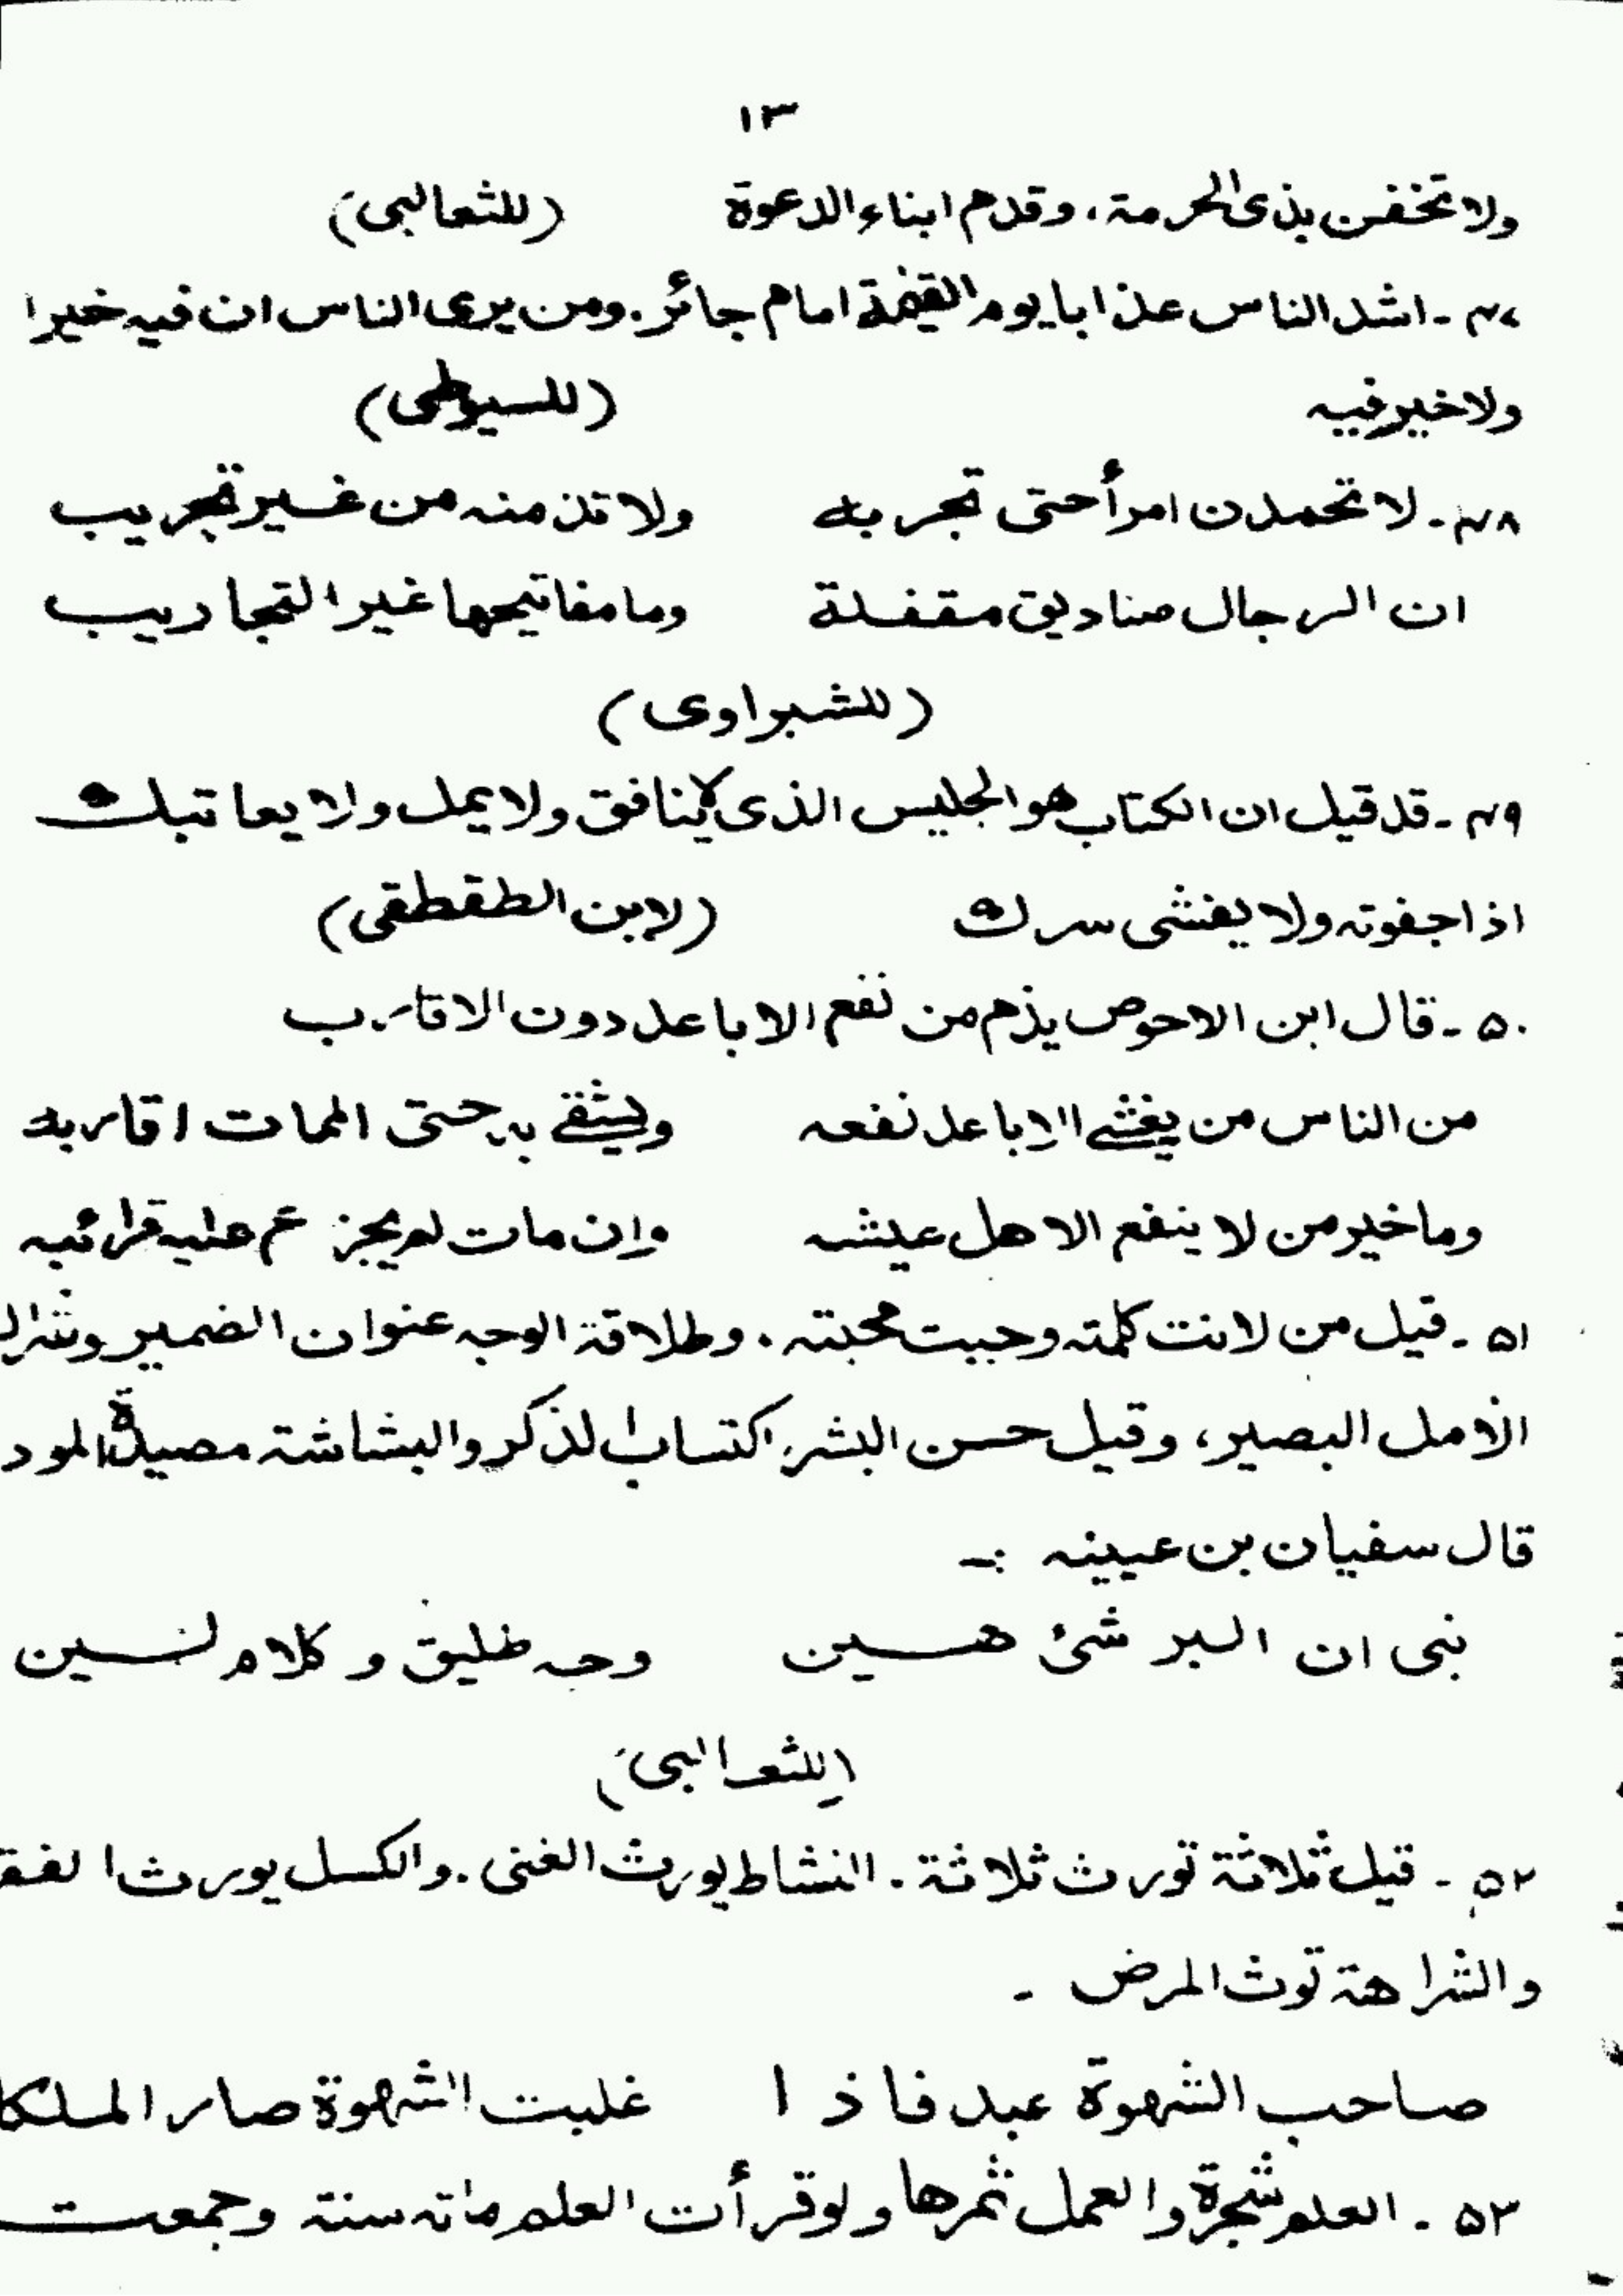 ١٣
ولا تخفن بذى الحرمة، وقدم ابناء الدعوة (للثعالبى)
٤٧ - اشد الناس عذابا يوم القيٰمة امام جائر. ومن يرى الناس ان فيه خيرا
ولا خير فيه (للسيوطى)
٤٨ - لا تحمدن امرأ حتى تجربه ولا تذمنه من غير تجريب
ان الرجال صناديق مقفلة وما مفاتيحها غير التجاريب
(للشبراوى)
٤٩ - قد قيل ان الكتاب هو الجليس الذى لا ينافق ولا يمل ولا يعاتبك
اذا جفوته ولا يفشى سرك (لابن الطقطقى)
٥٠ - قال ابن الاحوص يذم من نفع الاباعد دون الاقارب
من الناس من يغشے الاباعد نفعه ويشقے به حتى الممات اقاربه
وما خير من لا ينفع الاهل عيشه وان مات لم يجزع عليه قرائبه
٥١ - قيل من لانت كلمته وجبت محبته. وطلاقة الوجه عنوان الضمير وشرا
الامل البصير، وقيل حسن البشر اكتساب الذكر والبشاشة مصيدة المود
قال سفيان بن عيينه :-
بنى ان البر شئ هين وجه طليق وكلام لين
(للثعالبى)
٥٢ - قيل ثلاثة تورث ثلاثة. النشاط يورث الغنى. والكسل يورث الفق
والشراهة توث المرض -
صاحب الشهوة عبد فاذا غلبت الشهوة صار الملكا
٥٣ - العلم شجرة والعمل ثمرها ولو قرأت العلم مائة سنة وجمعت